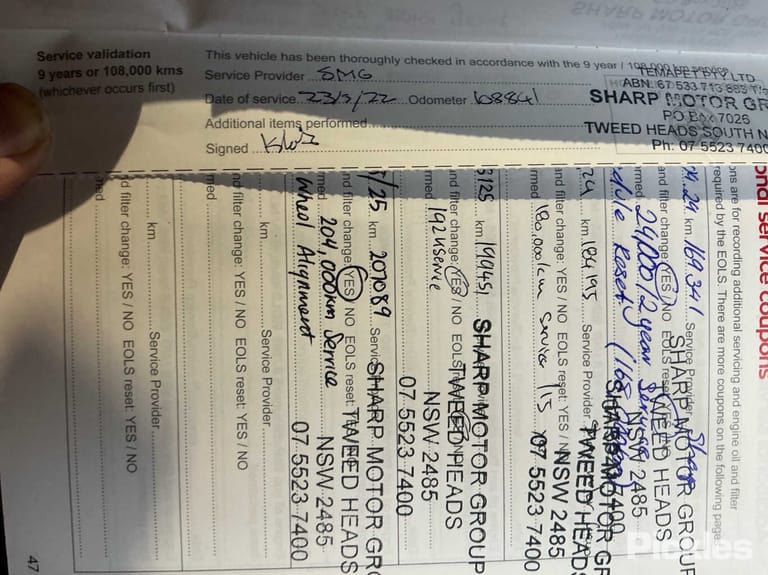 Service validation
9 years or 108,000 kms
(whichever occurs first)
This vehicle has been thoroughly checked in accordance with the 9 year / 108,000 km service
Service Provider SMG
Date of service 23/5/22 Odometer 108841
Additional items performed
Signed
TEMAPET PTY LTD
SHARP MOTOR GR
PO Box 7026
TWEED HEADS SOUTH N
Ph: 07 5523 7400
onal service coupons
ons are for recording additional servicing and engine oil and filter
required by the EOLS. There are more coupons on the following page.
24 km 169341 Service Provider Sharp
and filter change: YES / NO EOLS reset
rmed
SHARP MOTOR GROUP
TWEED HEADS
NSW 2485
7400
24 km 184195 Service Provider
and filter change: YES / NO EOLS reset: YES /
rmed 180,000km Service
SHARP MOTOR GR
TWEED HEADS
NSW 2485
07 5523 7400
3/25 km 190451
and filter change: YES / NO EOLS
rmed 192k service
SHARP MOTOR GROUP
TWEED HEADS
NSW 2485
07 5523 7400
/25 km 207089 Service
nd filter change: YES / NO EOLS reset: YES / NO
rmed 204,000km Service
Wheel Alignment
SHARP MOTOR GR
TWEED HEADS
NSW 2485
07 5523 7400
km Service Provider
nd filter change: YES / NO EOLS reset: YES / NO
rmed
km Service Provider
d filter change: YES / NO EOLS reset: YES / NO
med
47
Pickles